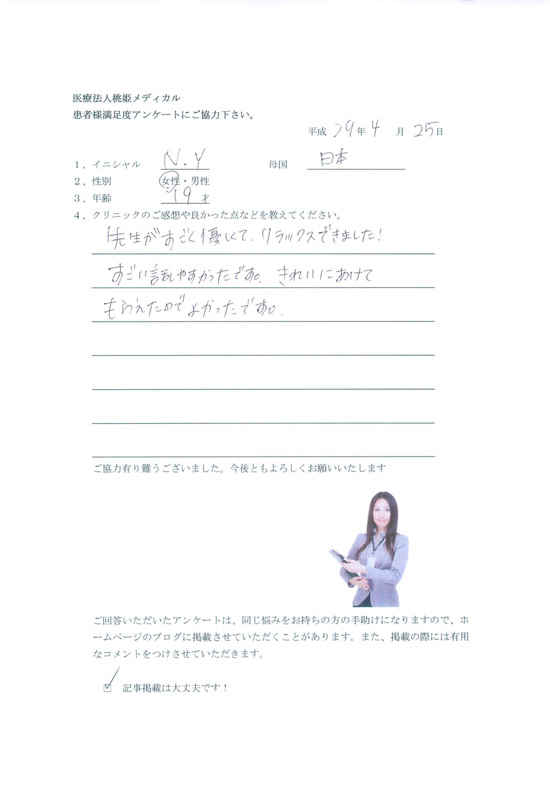 医療法人桃姫メディカル
患者様満足度アンケートにご協力下さい。
平成 29年 4 月 25日
1、イニシャル N.Y 母国 日本
2、性別 女性・男性
3、年齢 19才
4、クリニックのご感想や良かった点などを教えてください。
先生がすごく優しくて、リラックスできました!
すごい話しやすかったです。きれいにあけて
もらえたのでよかったです。
ご協力有り難うございました。今後ともよろしくお願いいたします
ご回答いただいたアンケートは、同じ悩みをお持ちの方の手助けになりますので、ホ
ームページのブログに掲載させていただくことがあります。また、掲載の際には有用
なコメントをつけさせていただきます。
☑ 記事掲載は大丈夫です!